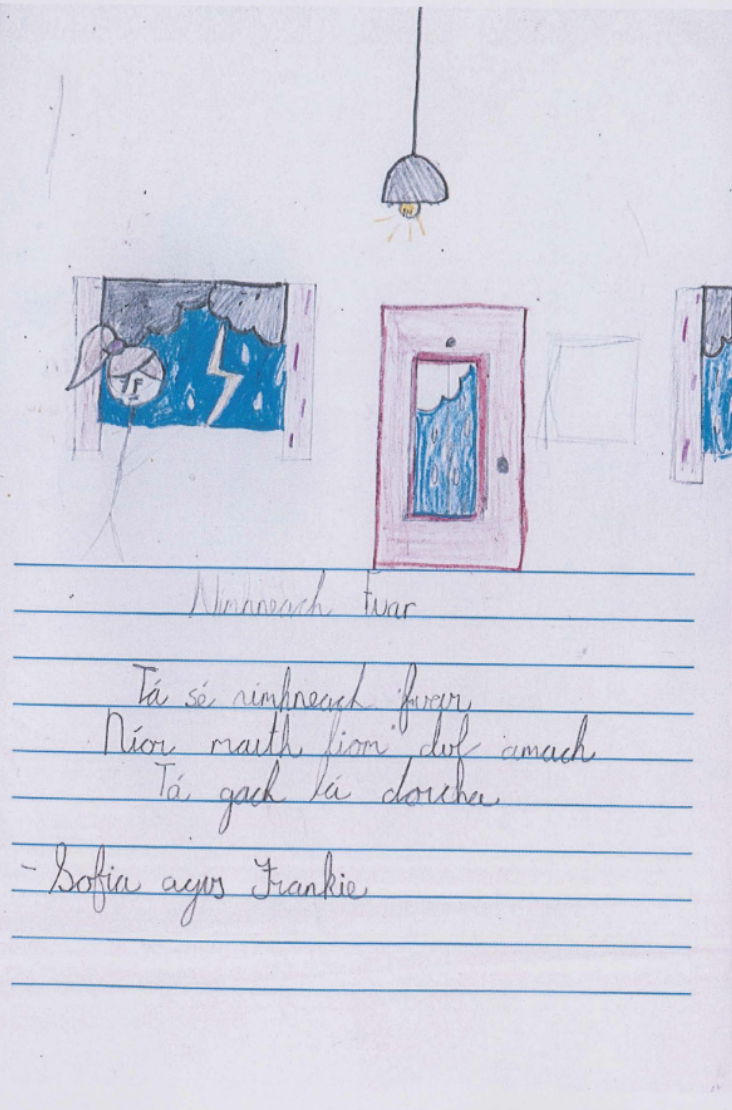 Nimhneach Fuar
Tá sé nimhneach fuar
Níor maith liom dul amach
Tá gach lá dorcha
- Sofia agus Frankie